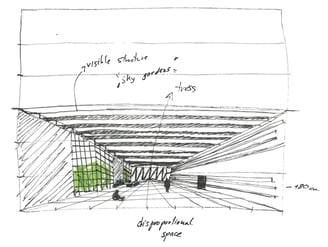 visible structure
"sky gardens"
tress
180 cm
disproportional
space